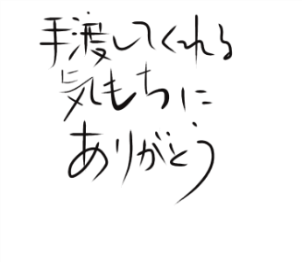 手渡してくれる
気もちに
ありがどう